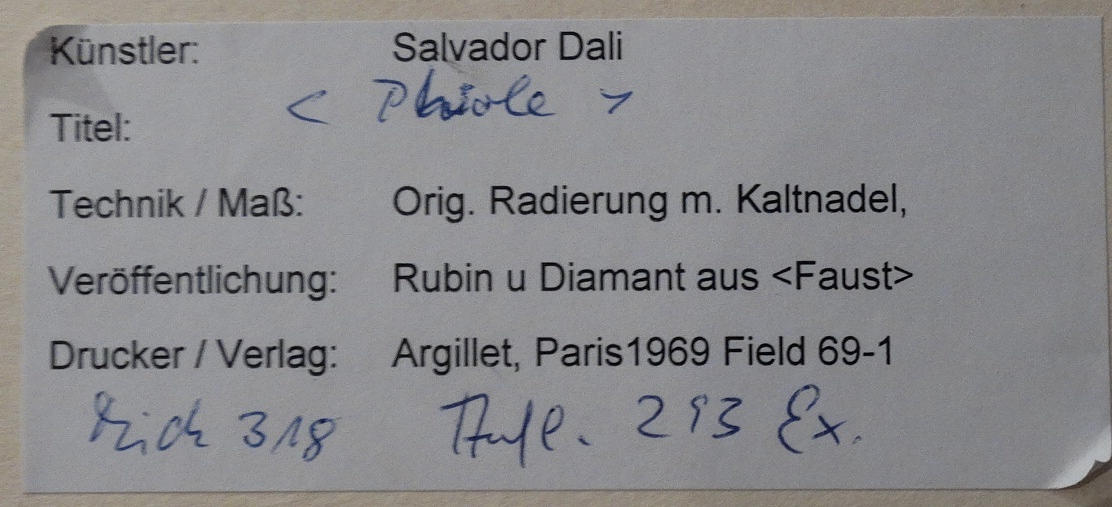 Künstler: Salvador Dali
Titel: < Phiole >
Technik / Maß: Orig. Radierung m. Kaltnadel,
Veröffentlichung: Rubin u Diamant aus <Faust>
Drucker / Verlag: Argillet, Paris1969 Field 69-1
318 Aufl. 293 Ex.